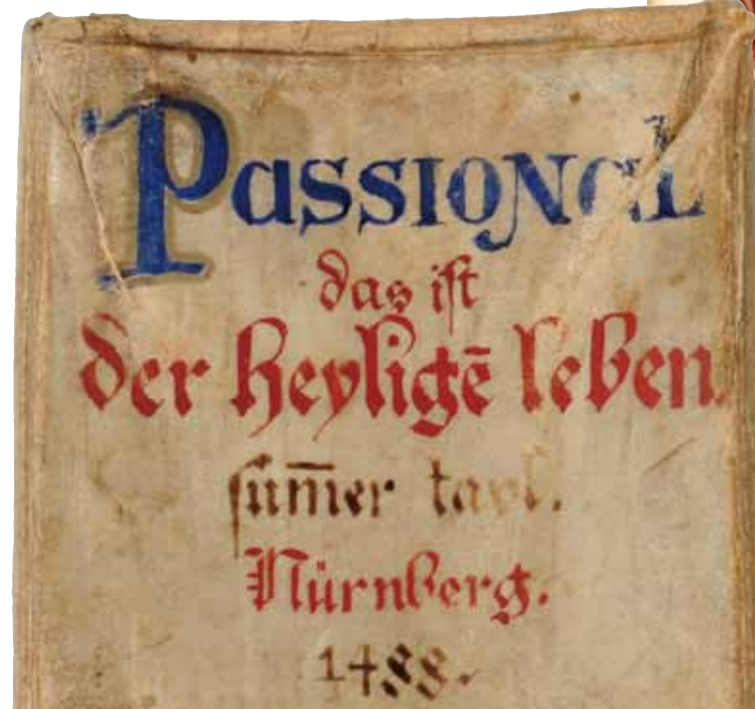 Passional
das ist
der heyligē leben.
sum̄er tayl.
Nürnberg.
1488.